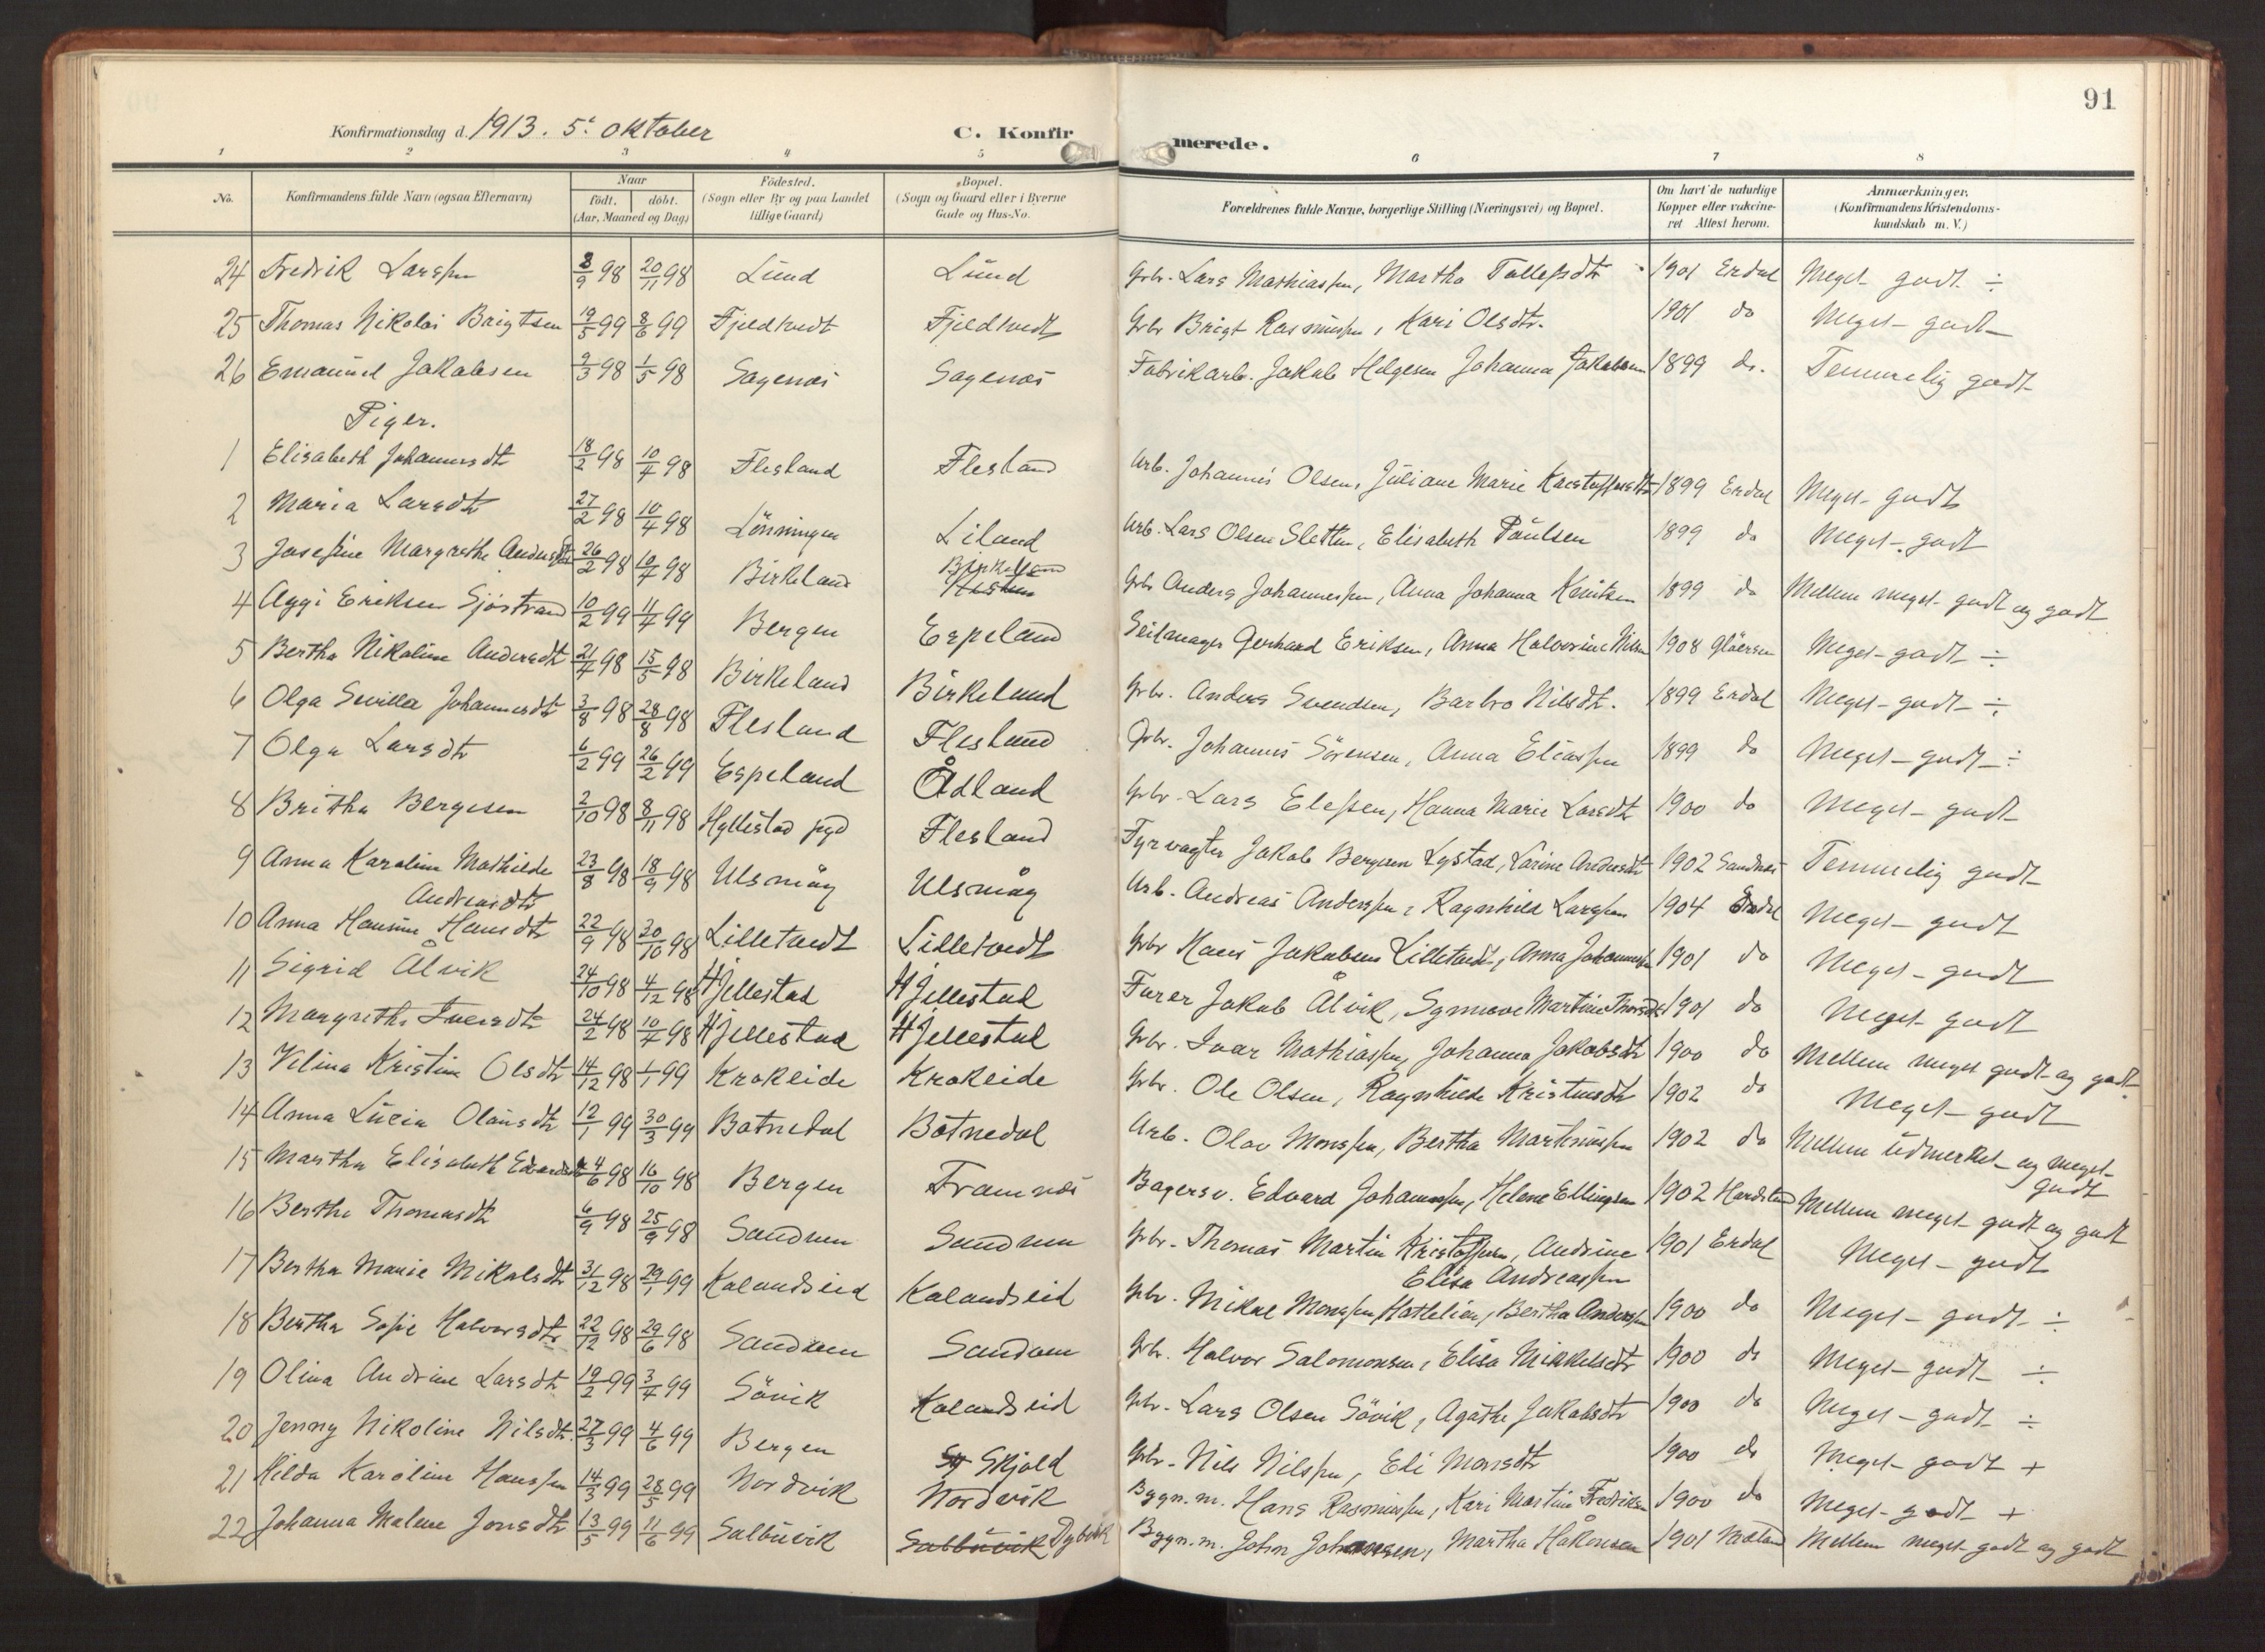 91
Konfirmationsdag d. 1913. 5t oktober
C. Konfirmerede.
1 2 3 4 5 6 7 8
No. Konfirmandens fulde Navn (ogsaa Efternavn) Naar födt. döbt. (Aar, Maaned og Dag) Födested. (Sogn eller By og paa Landet tillige Gaard) Bopæl. (Sogn og Gaard eller i Byerne Gade og Hus-No. Forældrenes fulde Navne, borgerlige Stilling (Næringsvei) og Bopæl. Om havt de naturlige Kopper eller vakcineret Attest herom. Anmærkninger. (Konfirmandens Kristendomskundskab m. V.)
24 Fredrik Larssen 3/9 98 20/11 98 Lund Lund Gbr. Lars Mathiassen, Martha Tollefsdtr 1901 Erdal Meget godt ÷
25 Thomas Nikolai Brigtsen 19/5 99 8/6 99 Fjeldtvedt Fjeldtvedt Gbr Brigt Rasmussen, Kari Olsdtr. 1901 do Meget godt
26 Emanuel Jakobsen 9/3 98 1/5 98 Sagenæs Sagenæs Fabrikarb. Jakob Helgesen Johanna Jakobsen 1899 do. Temmelig godt
Piger.
1 Elisabeth Johannesdtr 18/2 98 10/4 98 Flesland Flesland Arb. Johannes Olsen, Juliane Marie 1899 Erdal Meget godt
2 Maria Larsdtr 27/2 98 10/4 98 Lönningen Liland Arb. Lars Olsen Sletten, Elisabeth Paulsen 1899 do Meget godt
3 Josefine Margrethe Andersdtr 26/2 98 10/4 98 Birkeland Birkeland Gbr Anders Johannessen, Anna Johanna Knutsen 1899 do Mellem meget godt og godt
4 Aggi Eriksen Sjöstrand 10/2 99 11/4 99 Bergen Espeland Seilmager Gerhard Eriksen, Anna Halvorine Nilsen 1908 Gläersen Meget godt ÷
5 Bertha Nikoline Andersdtr 21/4 98 15/5 98 Birkeland Birkeland Gbr. Anders Svendsen, Barbro Nilsdtr. 1899 Erdal Meget godt ÷
6 Olga Sevilla Johannesdtr 3/8 98 28/8 98 Flesland Flesland Gbr. Johannes Sörensen, Anna Eliassen 1899 do Meget godt ÷
7 Olga Larsdtr 6/2 99 26/2 99 Espeland Ådland Gbr. Lars Elessen, Hanna Marie Larsdtr 1900 do Meget godt
8 Britha Bergesen 2/10 98 8/11 98 Hyllestad pgd Flesland Fyrvagter Jakob Bergesen Lystad, Larine Andersdtr 1902 Sandnæs Temmelig godt
9 Anna Karoline Mathilde Andreasdtr 23/8 98 18/9 98 Ulsmåg Ulsmåg Arb. Andreas Anderssen, Ragnhild Larssen 1904 Erdal Meget godt
10 Anna Hansine Hansdtr 22/9 98 30/10 98 Lilletvedt Lilletvedt Gbr Hans Jakobsen Lilletvedt, Anna Johannessen 1901 do Meget godt
11 Sigrid Ålvik 24/10 98 4/12 98 Hjellestad Hjellestad Furer Jakob Ålvik, Synneve Martine Thorsdtr 1901 do Meget godt
12 Margrethe Iversdtr 24/2 98 10/4 98 Hjellestad Hjellestad Gbr. Ivar Mathiassen, Johanna Jakobsdtr 1900 do Mellem meget godt og godt
13 Vilina Kristine Olsdtr 14/12 98 1/1 99 Krokeide Krokeide Gbr. Ole Olsen, Ragnhilde Kristensdtr 1902 do Meget godt
14 Anna Lucia Olausdtr 12/1 99 30/3 99 Botnedal Botnedal Arb. Olav Monssen, Bertha Martinussen 1902 do Mellem udmerket og meget godt
15 Martha Elisabeth Edvardsdtr 4/6 98 16/10 98 Bergen Framnæs Bagersv. Edvard Johannssen, Helene Ellingsen 1902 Mellem meget godt og godt
16 Berthe Thomasdtr 6/9 98 25/9 98 Sandven Sandven Gbr. Thomas Martin Kristoffersen, Andrine Elisa Andreassen 1901 Erdal Meget godt
17 Bertha Marie Mikalsdtr 31/12 98 29/1 99 Kalandseid Kalandseid Gbr. Mikal Monssen Hattelien, Bertha Anderssen 1900 do Meget godt ÷
18 Bertha Sofie Halvorsdtr 22/12 98 29/6 98 Sandven Sandven Gbr. Halvor Salomonsen, Elisa Mikkelsdtr 1900 do Meget godt ÷
19 Olina Andrine Larsdtr 19/2 99 3/4 99 Sövik Kalandseid Gbr. Lars Olsen Sövik, Agathe Jakobsdtr 1900 do Meget godt ÷
20 Jenny Nikoline Nilsdtr. 27/3 99 4/6 99 Bergen Skjold Gbr. Nils Nilssen, Eli Monsdtr 1900 do Meget godt +
21 Hilda Karoline Hanssen 14/3 99 28/5 99 Nordvik Nordvik Bygn.m. Hans Rasmussen, Kari Martine Fredriksen 1900 do Meget godt +
22 Johanna Malene Jonsdtr 13/5 99 11/6 99 Salbuvik Salbuvik Dybvik Bygn.m. John Johannesen, Martha Håkonsen 1901 Mellem meget godt og godt